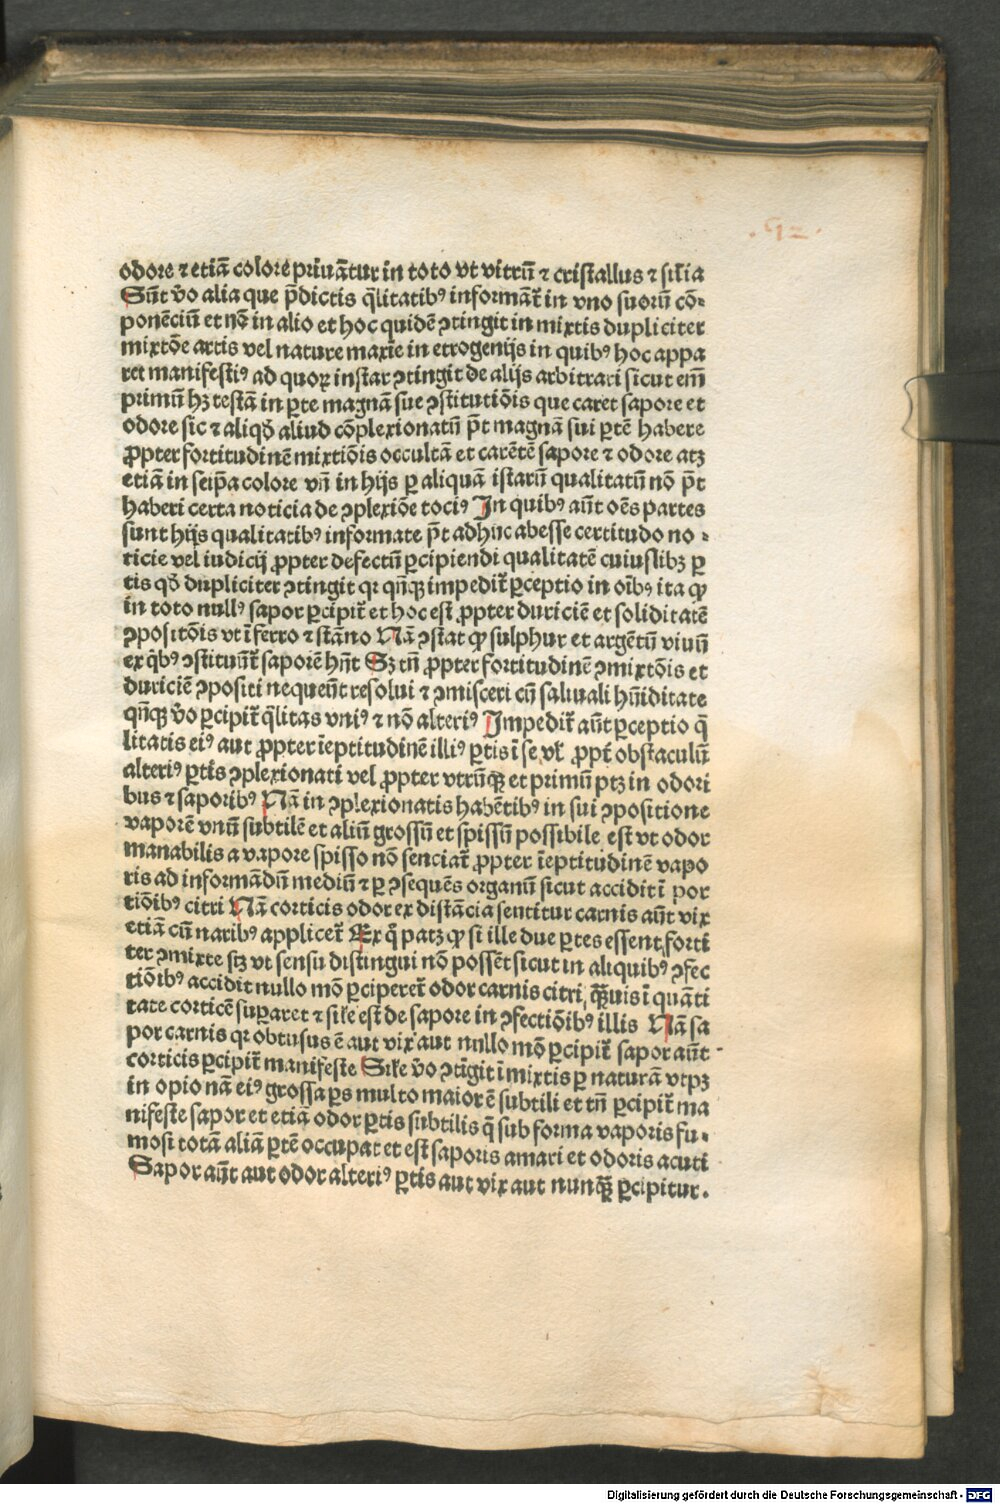 .92.
odore ⁊ etiā colore priuātur in toto vt vitrū ⁊ cristallus ⁊ sił̄ia
Sūt ṽo alia que p̄dictis q̄litatibꝰ informāt᷑ in vno suorū cō-
ponēciū et nō in alio et hoc quidē ꝯtingit in mixtis dupliciter
mixtōe artis vel nature maxīe in etrogenijs in quibꝰ hoc appa
ret manifestiꝰ ad quoꝝ instar ꝯtingit de alijs arbitrari sicut em̄
primū hꝫ testā in ꝑte magnā sue ꝯstitutiōis que caret sapore et
odore sic ⁊ aliqđ aliud cōplexionatū p̄t magnā sui ꝑtē habere
ꝓpter fortitudinē mixtiōis occultā et carētē sapore ⁊ odore atꝫ
etiā in seip̄a colore vn̄ in hijs ꝑ aliquā istarū qualitatū nō p̄t
haberi certa noticia de ꝯplexiōe tociꝰ In quibꝰ aūt oēs partes
sunt hijs qualitatibꝰ informate p̄t adhuc abesse certitudo no-
ticie vel iudicij ꝓpter defectū ꝑcipiendi qualitatē cuiuslibꝫ ꝑ
tis qđ dupliciter ꝯtingit qr qn̄qꝫ impedit᷑ ꝑceptio in oībꝰ ita ꝙ
in toto nullꝰ sapor ꝑcipit᷑ et hoc est ꝓpter duriciē et soliditatē
ꝯpositōis vt ī ferro ⁊ stāno Nā ꝯstat ꝙ sulphur et argētū viuū
ex q̄bꝰ ꝯstituūt᷑ saporē hn̄t Sꝫ tn̄ ꝓpter fortitudinē ꝯmixtōis et
duriciē ꝯpositi nequeūt resolui ⁊ ꝯmisceri cū saliuali hūiditate
qn̄qꝫ ṽo ꝑcipit᷑ q̄litas vniꝰ ⁊ nō alteriꝰ Impedit᷑ aūt ꝑceptio q̄
litatis eiꝰ aut ꝓpter īeptitudinē illiꝰ ꝑtis ī se vł ꝓpt̄ obstaculū
alteriꝰ ꝑtis ꝯplexionati vel ꝓpter vtrūqꝫ et primū ptꝫ in odori
bus ⁊ saporibꝰ Nā in ꝯplexionatis habētibꝰ in sui ꝯpositione
vaporē vnū subtilē et aliū grossū et spissū possibile est vt odor
manabilis a vapore spisso nō senciat᷑ ꝓpter īeptitudinē vapo
ris ad informādū mediū ⁊ ꝑ ꝯsequēs organū sicut accidit ī por
tiōibꝰ citri Nā corticis odor ex distācia sentitur carnis aūt vix
etiā cū naribꝰ applicet᷑ Ex q̄ patꝫ ꝙ si ille due ꝑtes essent forti
ter ꝯmixte sꝫ vt sensu distingui nō possēt sicut in aliquibꝰ ꝯfec
tiōibꝰ accidit nullo mō ꝑciperet᷑ odor carnis citri q̄uis ī quāti
tate corticē suꝑaret ⁊ siłe est de sapore in ꝯfectiōibꝰ illis Nā sa
por carnis qr obtusus ē aut vix aut nullo mō ꝑcipit᷑ sapor aūt
corticis ꝑcipit᷑ manifeste Siłe ṽo ꝯtīgit ī mixtis ꝑ naturā vtpꝫ
in opio nā eiꝰ grossa ꝑs multo maior ē subtili et tn̄ ꝑcipit᷑ ma
nifeste sapor et etiā odor ꝑtis subtilis q̄ sub forma vaporis fu-
mosi totā aliā ꝑtē occupat et est saporis amari et odoris acuti
Sapor aūt aut odor alteriꝰ ꝑtis aut vix aut nunq̄ ꝑcipitur.
Digitalisierung gefördert durch die Deutsche Forschungsgemeinschaft - DFG